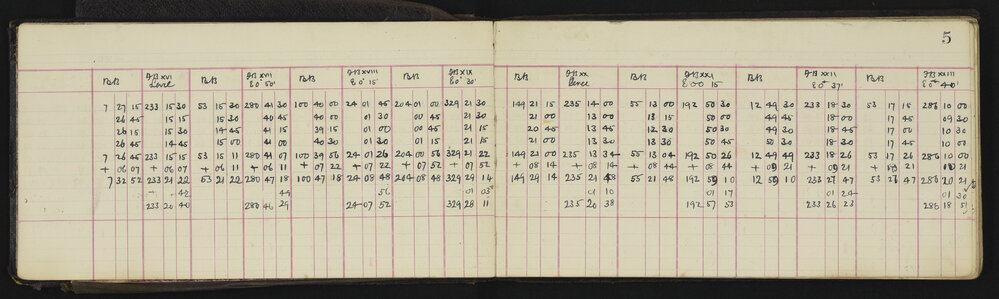 5
BB IB XVI BB IB XVII BB IB XVIII BB IB XIX BB IB XX BB IB XXI BB IB XXII BB IB XXIII
Level E0° 50' E0° 15' E0° 30' Level E00 15 E0° 37' E0° 40'
7 27 15 233 15 30 53 15 30 280 41 30 100 40 00 24 01 45 204 01 00 329 21 30 149 21 15 235 14 00 55 13 00 192 50 30 12 49 30 233 18 30 53 17 15 286 10 00
26 45 15 15 15 30 40 45 40 00 01 30 00 45 21 30 21 00 13 00 13 15 50 00 49 45 18 00 17 00 09 30
26 15 15 30 14 45 41 15 39 15 01 00 00 45 21 15 20 45 13 45 12 30 50 30 49 30 18 45 17 00 10 30
26 45 14 45 15 00 40 45 40 00 01 00 01 15 21 15 21 00 13 30 13 30 50 45 50 30 18 30 17 45 10 00
7 26 45 233 15 15 53 15 11 280 41 07 100 39 56 24 01 26 204 00 56 329 21 22 149 21 00 235 13 34 55 13 04 192 50 26 12 49 49 233 18 26 53 17 26 286 10 00
+ 06 07 + 06 07 + 06 11 + 06 11 + 07 22 + 07 22 + 07 52 + 07 52 + 08 14 + 08 14 + 08 44 + 08 44 + 09 21 + 09 21 + 09 21 + 09 21
7 32 52 233 21 22 53 21 22 280 47 18 100 47 18 24 08 48 204 08 48 329 29 14 149 29 14 235 21 48 55 21 48 192 59 10 12 59 10 233 27 47 53 26 47 286 20 21
42 49 56 01 03 01 10 01 17 01 24 01 30
233 20 40 280 46 29 24 07 52 329 28 11 235 20 38 192 57 53 233 26 23 286 18 51